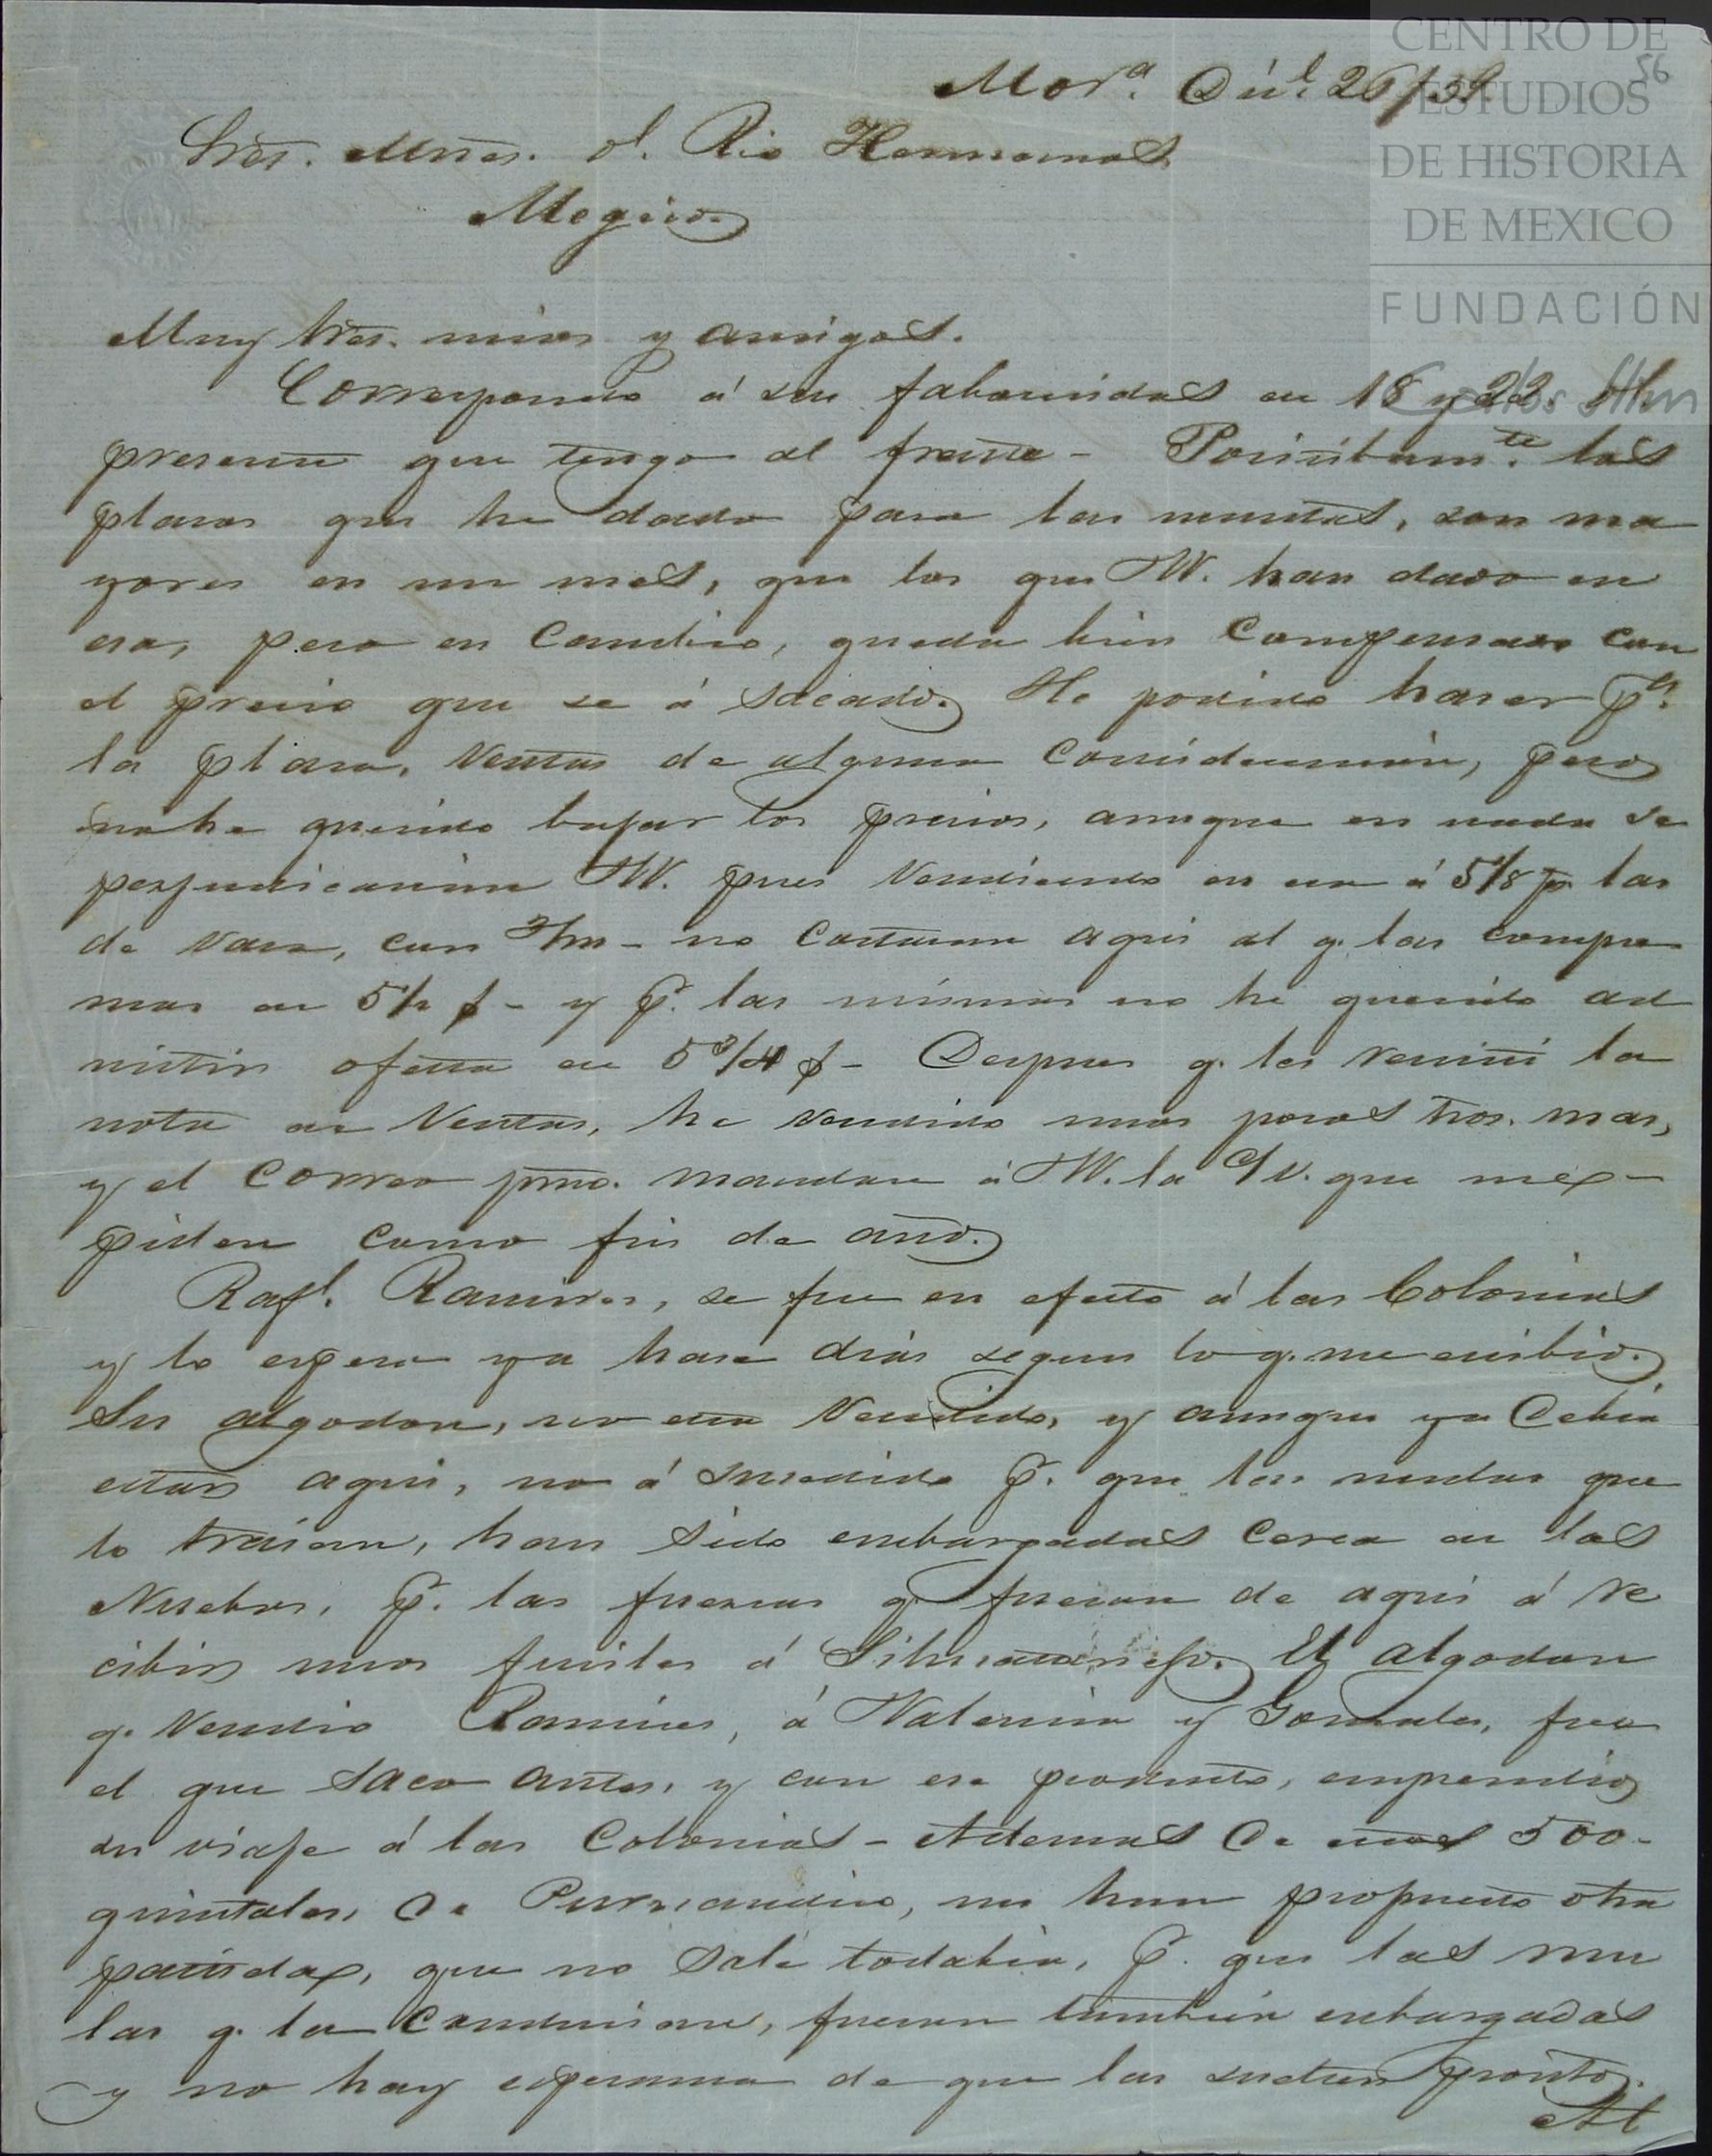 CENTRO DE
ESTUDIOS
DE HISTORIA
DE MEXICO
FUNDACIÓN
56
Mora. Dil. 26/59
Sres. Mnes. dl. Rio Hermanos
Megico.
Muy Sres. mios y amigos.
Correspondo á sus faborecidas de 18 y 22 dl.
presente que tengo al frente - Positibamte. los
plasos que he dado para las mantas, son ma
yores en un mes, que los que VV. han dado en
esa, pero en cambio, queda bien compensado con
el precio que se á sacado. He podido haser pa.
la plasa, Ventas de alguna considerasion, pero
no he querido bajar los precios, aunque en nada se
perjudicarian VV. pues Vendiendo en esa á 5/8 p las
de Vara, con no costaran aqui al q. las compra
mas de 5 1/2 $ - y p. las mismas no he querido ad
mitir oferta de 5 3/4 $ - Despues q. les remiti la
nota de Ventas, he vendido unos pocos tros. mas,
y el correo pmo. mandare á VV. la C/V. que me
piden como fin de año.
Rafl. Ramires, se fue en efecto á las Colonias
y lo espero ya hase dias segun lo q. me escribio.
Su algodon, no esta Vendido, y aunque ya debia
estar aqui, no á susedido p. que las mulas que
lo traian, han sido embargadas cerca de las
Nuebas, p. las fuersas q. fueron de aqui á re
cibir unos fusiles á Sihuatanejo. El algodon
q. Vendio Ramires, á Valensia y Gonsales, fue
el que saco antes, y con ese producto, emprendio
su viaje á las Colonias - Ademas de unos 500 -
quintales, de Puruandiro, me han propuesto otra
partida, que no sale todabia, p. que las mu
las q. la condusian, fueron tambien enbargadas
y no hay esperansa de que las suelten pronto.
Al